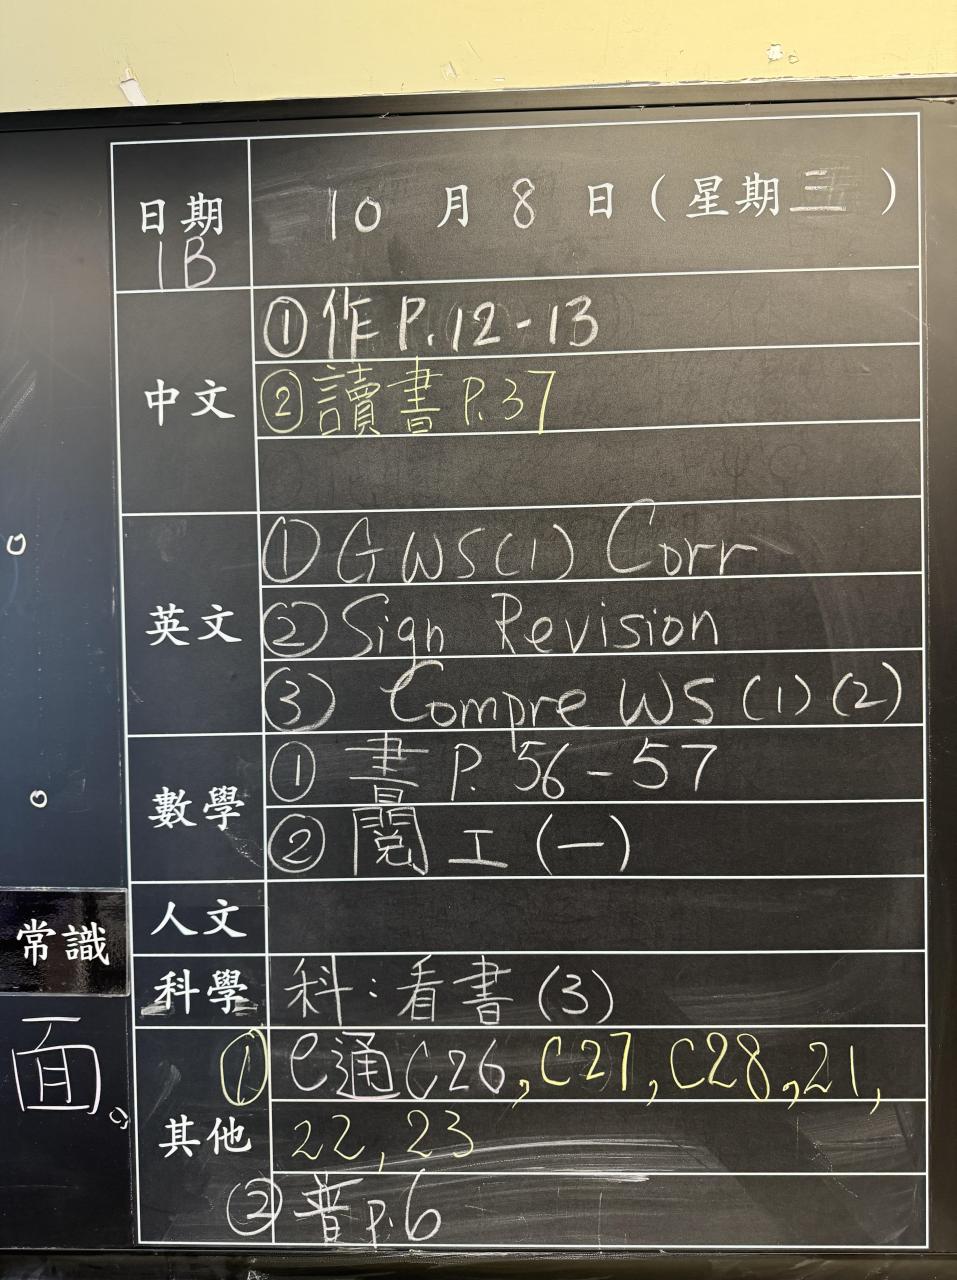 日期 10月8日（星期三）
1B
中文
①作P.12-13
②讀書P.37
英文
①GWS(1) Corr
②Sign Revision
③ Compre WS(1)(2)
數學
①書 P.56-57
② 閱工(一)
人文
常識
科學 科：看書(3)
面
其他
① e通C26,C27,C28,21,
22,23
② 普P.6